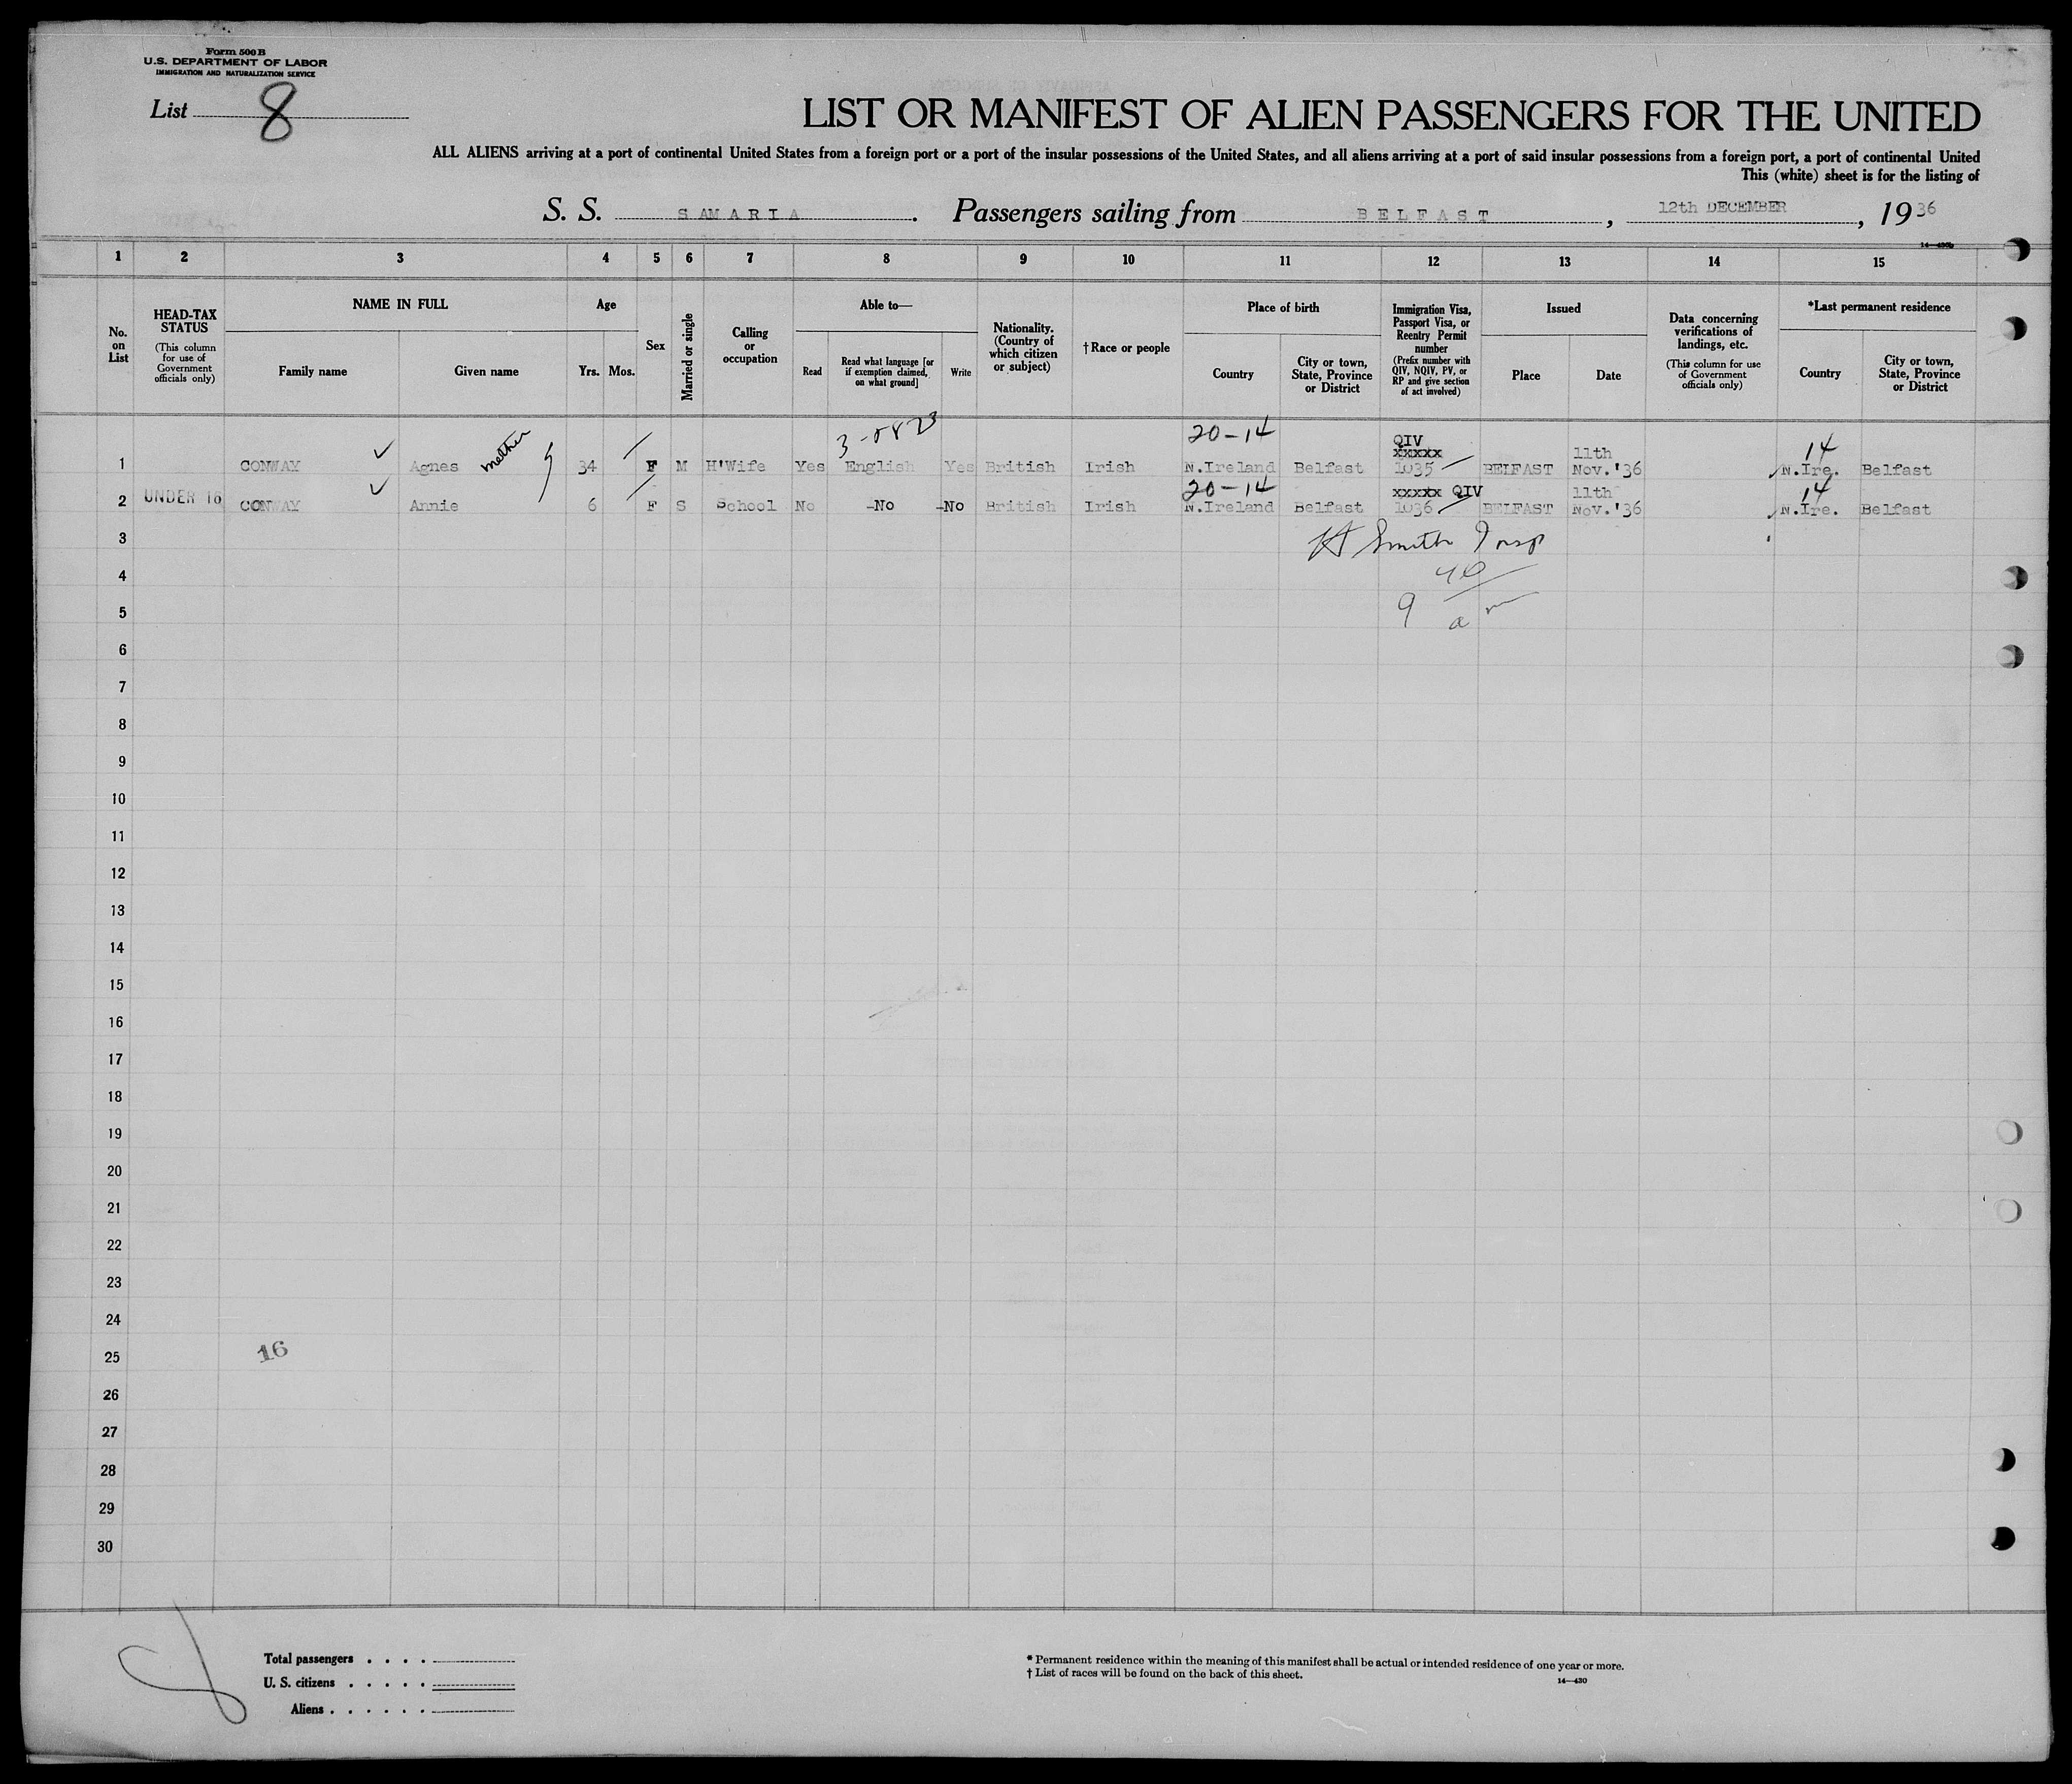 Form 500 B
U.S. DEPARTMENT OF LABOR
IMMIGRATION AND NATURALIZATION SERVICE
List 8
LIST OR MANIFEST OF ALIEN PASSENGERS FOR THE UNITED
ALL ALIENS arriving at a port of continental United States from a foreign port or a port of the insular possessions of the United States, and all aliens arriving at a port of said insular possessions from a foreign port, a port of continental United
This (white) sheet is for the listing of
S. S. SAMARIA. Passengers sailing from BELFAST, 12th DECEMBER, 1936
14—430b
1 2 3 4 5 6 7 8 9 10 11 12 13 14 15
No. on List
HEAD-TAX STATUS
(This column for use of Government officials only)
NAME IN FULL
Family name
Given name
Age
Yrs. Mos.
Sex
Married or single
Calling or occupation
Able to—
Read
Read what language [or if exemption claimed, on what ground]
Write
Nationality. (Country of which citizen or subject)
†Race or people
Place of birth
Country
City or town, State, Province or District
Immigration Visa, Passport Visa, or Reentry Permit number
(Prefix number with QIV, NQIV, PV, or RP and give section of act involved)
Issued
Place
Date
Data concerning verifications of landings, etc.
(This column for use of Government officials only)
*Last permanent residence
Country
City or town, State, Province or District
20-14 QIV 14
xxxxx 11th
1 CONWAY Agnes mother 34 F M H'Wife Yes English Yes British Irish N.Ireland Belfast 1035 BELFAST Nov.'36 N.Ire. Belfast
20-14 xxxxx QIV 11th 14
2 UNDER 16 CONWAY Annie 6 F S School No -No -No British Irish N.Ireland Belfast 1036 BELFAST Nov.'36 N.Ire. Belfast
3 Smith Insp
4
5 9
6
7
8
9
10
11
12
13
14
15
16
17
18
19
20
21
22
23
24
25 16
26
27
28
29
30
Total passengers . . . .
U. S. citizens . . . . .
Aliens . . . . . .
* Permanent residence within the meaning of this manifest shall be actual or intended residence of one year or more.
† List of races will be found on the back of this sheet.
14—430